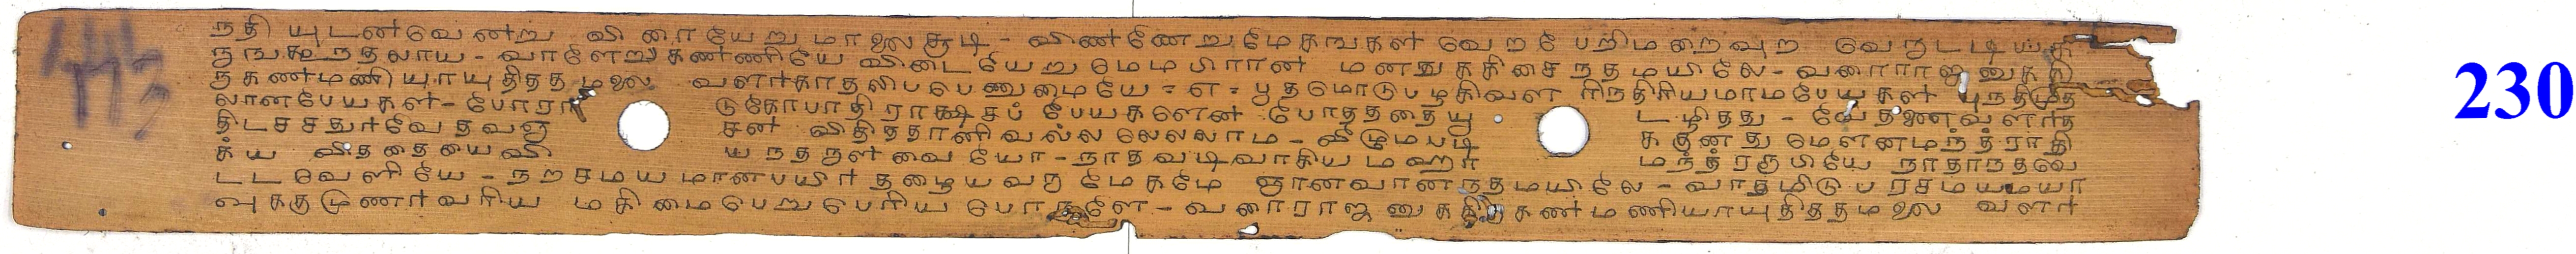 நதி யுடனவெனறு வி ரை யேறு மாலை சூடி - விணணேறு மேகஙகள வெற பேறிமறைவுற வெருடடிய
வாளேறு கணணியே விடையேறு மெமபிரான மனதுககிசைநதமயிலே - வரைராஜனுககி
கணமணி யாயுதிதத மலை வளாகாதலிபபெணணுமையே = எ = பூதமொடு பழகிவள ரிநதிரியமாமபேயகள
லானபேயகள - போரா டுகோபாதி ராக்ஷசப பேயகளென போதததையூ டழிதது - வேதனைவளாத
திடசசதுரவேதவஞ சன விதிததானிவலல லெலலாம - வீடுமபடி ககுனது மௌனமநத்ராதி
க்ய விததையை வி யநதருளவை யோ - நாதவடிவாகிய மஹா மநத்ரரூபியே நாதாநதவெ
டடவெளியே - நறசமயமானபயிர தழையவரு மேகமே ஞானவானநதமயிலே - வாதமிடு பரசமயமயா
வுககுமுணரவரிய மகிமைபெறு பெரிய பொருளே - வரைராஜனுககிருகணமணியாயுதிததமலை வளர
230